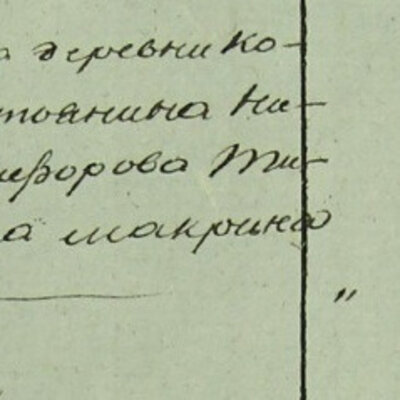 а деревни Ко-
стьянина Ни-
кифорова Ти-
на Макрина
"